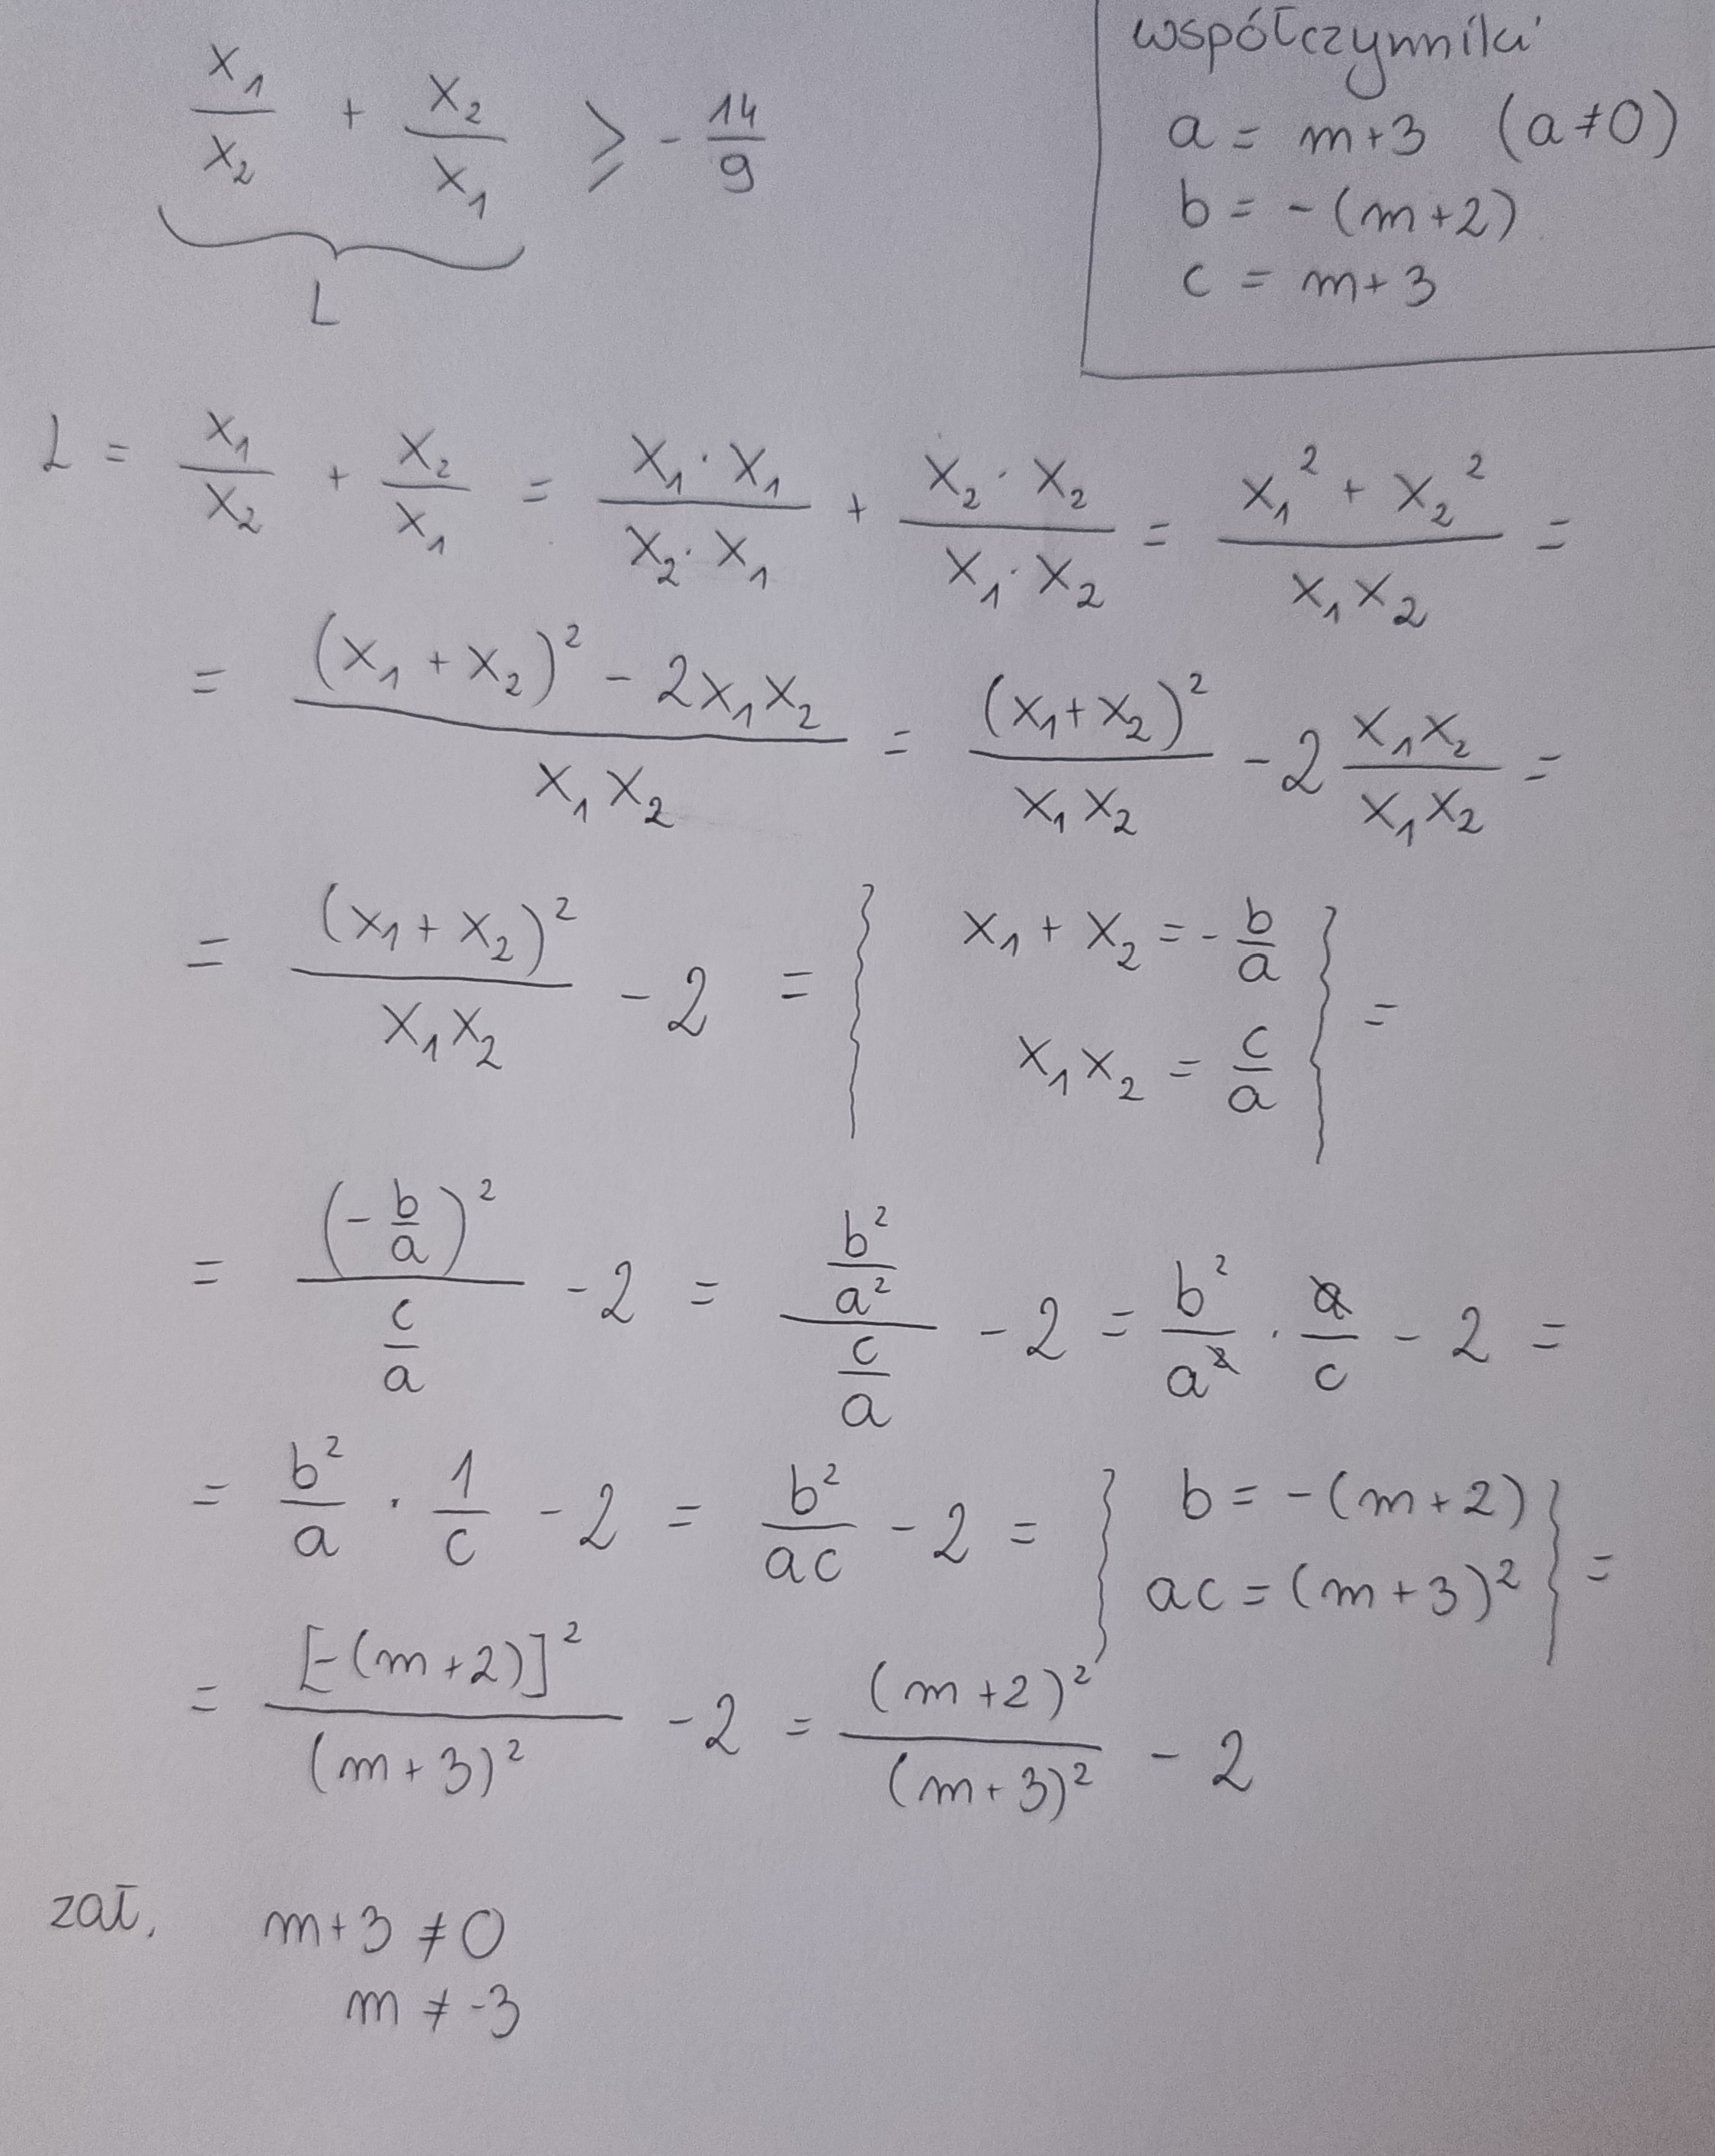 x₁/x₂ + x₂/x₁ ⩾ - 14/9
L
współczynniki
a = m+3 (a≠0)
b = -(m+2)
c = m+3
L = x₁/x₂ + x₂/x₁ = (x₁·x₁)/(x₂·x₁) + (x₂·x₂)/(x₁·x₂) = (x₁² + x₂²)/(x₁x₂) =
= ((x₁+x₂)² - 2x₁x₂)/(x₁x₂) = (x₁+x₂)²/(x₁x₂) - 2 (x₁x₂)/(x₁x₂) =
= (x₁+x₂)²/(x₁x₂) - 2 = } x₁ + x₂ = - b/a
x₁x₂ = c/a } =
= (-b/a)²/(c/a) - 2 = (b²/a²)/(c/a) - 2 = b²/a² · a/c - 2 =
= b²/a · 1/c - 2 = b²/(ac) - 2 = } b = -(m+2)
ac = (m+3)² } =
= [-(m+2)]²/(m+3)² - 2 = (m+2)²/(m+3)² - 2
zał. m+3 ≠ 0
m ≠ -3